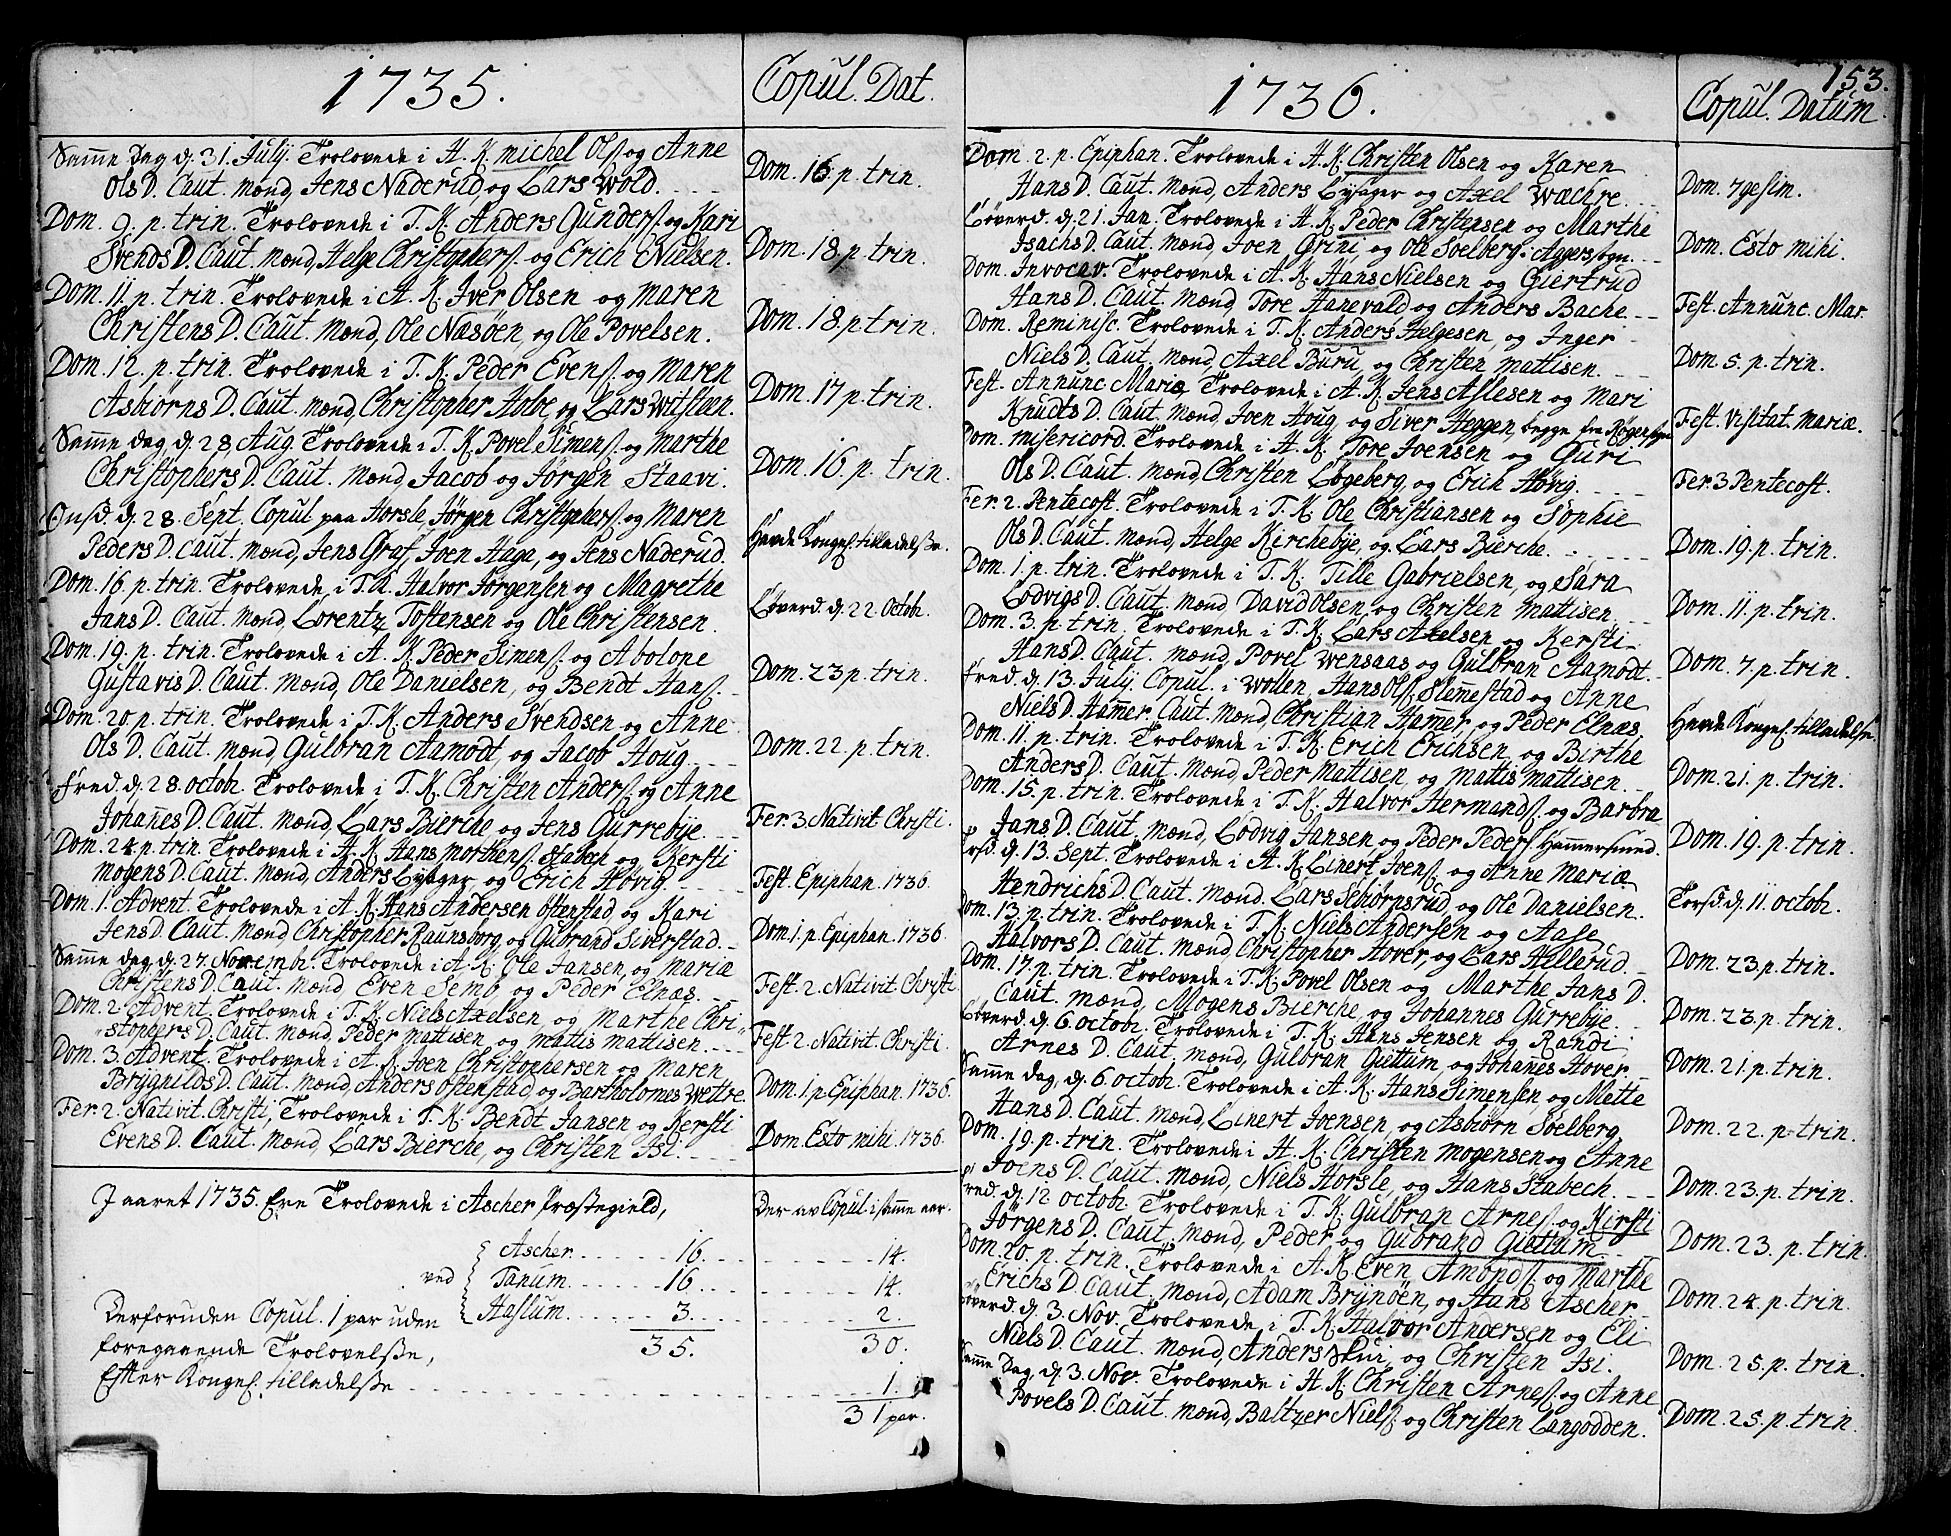 1735.
Copul. Dat.
Samme Dag d. 31. Julij. Trolovede i A. K. Michel Ols. og Anne
Ols D. Caut. Mænd, Jens Naderud, og Lars Wold.
Dom. 16. p. trin.
Dom. 9. p. trin. Trolovede i T. K. Anders Gunders. og Kari
Svends D. Caut. Mænd, Helge Christophers. og Erich Nielsen.
Dom. 18. p. trin.
Dom. 11. p. trin. Trolovede i A. K. Iver Olsen og Maren
Christens D. Caut. Mænd, Ole Næsøen, og Ole Povelsen.
Dom. 18. p. trin.
Dom. 12. p. trin. Trolovede i T. K. Peder Evens. og Maren
Asbiørns D. Caut. Mænd, Christopher Holbe, og Lars Witsteen.
Dom. 17 p. trin.
Samme dag d. 28 Aug. Trolovede i T. K. Povel Simens. og Marthe
Christophers D. Caut. Mænd, Jacob og Jørgen Staavi.
Dom. 16. p. trin.
Onsd. d. 28. Sept. Copul paa Horsle, Jørgen Christophers. og Maren
Peders D. Caut. Mænd, Jens Graf, Joen Haga, og Jens Naderud.
Havde Konges. tilladelsse.
Dom. 16. p. trin. Trolovede, i T. K. Halvor Jørgensen og Magrethe
Jans D. Caut. Mænd Lorentz Tostensen og Ole Christensen.
Løverd. d. 22. Octob.
Dom. 19. p. trin. Trolovede i A. K. Peder Simens. og Abolone
Gustavis D. Caut. Mænd, Ole Danielsen, og Bendt Hans.
Dom. 23 p. trin.
Dom. 20. p. trin. Trolovede i T. K. Anders Svendsen og Anne
Ols D. Caut. Mænd Gulbran Aamodt, og Jacob Houg.
Dom. 22. p. trin.
Fred. d. 28. Octob. Trolovede i T. K. Christen Anders. og Anne
Johannes D. Caut. Mænd, Lars Bierche og Jens Gurrebye.
Fer. 3 Nativit Christi.
Dom. 24. p. trin. Trolovede i A. K. Hans Morthens. Stabech og Kersti
Mogens D. Caut. Mænd, Anders Lysager og Erich Høvig.
Fest. Epiphan. 1736.
Dom. 1. Advent. Trolovede i A. K. Hans Andersen Ostenstad, og Kari
Jens D. Caut. Mænd Christopher Raunsborg, og Gubrand Siverstad.
Dom. 1. p. Epiphan. 1736.
Samme dag d. 27. Novemb. Trolovede i A. K. Ole Jansen, og Mariæ
Christens D. Caut. Mænd Even Semb, og Peder Elnæs.
Fest. 2. Nativit. Christi
Dom. 2. Advent. Trolovede i T. K. Niels Axelsen, og Marthe Chri-
stophers D. Caut. Mænd, Peder Mattisen og Mattis Mattisen.
Fest. 2. Nativit. Christi.
Dom. 3. Advent, Trolovede i A. K. Joen Christophersen og Maren
Brÿgnilds D. Caut. Mænd, Anders Ostenstad, og Bartholomes Wettre.
Dom. 1. p Epiphan. 1736.
Fer. 2. Nativit. Christi, Trolovede i T. K. Bendt Jansen og Kersti
Evens D. Caut. Mænd, Lars Bierche, og Christen Isi.
Dom. Esto mihi. 1736.
I aaret 1735. Ere Trolovede i Ascher Præstegield,
Der av Copul. i samme aar.
ved
Ascher 16. 14.
Tanum 16. 14.
Haslum 3. 2.
35. 30.
Derforuden Copul. 1 par uden
foregaaende Trolovelsse,
Efter Konges. tilladelsse 1.
31 par.
1736.
153.
Copul. Datum.
Dom. 2. p. Epiphan. Trolovede i A. K. Christen Olsen og Karen
Hans D. Caut. Mænd, Anders Lysager og Axel Wæchre.
Dom. 7gesim.
Løverd. d. 21. Jan. Trolovede i A. K. Peder Christensen og Marthe
Isachs D. Caut. Mænd, Joen Grini, og Ole Soelberg i Aggers sogn.
Dom. Esto mihi.
Dom. Invocav. Trolovede i A. K. Hans Nielsen og Giertrud
Hans D. Caut. Mænd, Tore Hanevald og Anders Bache
Fest. Annunc. Mar.
Dom. Reminisc. Trolovede i T. K. Anders Helgesen, og Inger
Niels D. Caut. Mænd, Axel Buru, og Christen Mattisen.
Dom. 5. p. trin.
Fest. Annunc Mariæ, Trolovede i A. K. Jens Aslesen og Mari
Knudts D. Caut. Mænd, Joen Houg, og Siver Heggen, begge fra Røgen sogn
Fest. Visitat. Mariæ.
Dom. Misericord. Trolovede i A. K. Tore Joensen og Guri
Ols D. Caut. Mænd, Christen Løgeberg, og Erich Høvig.
Fer. 3 Pentecost.
Fer. 2. Pentecost. Trolovede i T. K. Ole Christiansen og Sophie
Ols D. Caut. Mænd, Helge Kirchebye, og Lars Bierche.
Dom. 19. p. trin.
Dom. 1. p. trin. Trolovede i T. K. Tille Gabrielsen, og Sara
Lodvigs D. Caut. Mænd David Olsen, og Christen Mattisen.
Dom. 11. p. trin.
Dom. 3. p. trin. Trolovede i T. K. Lars Axelsen, og Kersti
Hans D. Caut. Mænd, Povel Wensaas og Gulbran Aamodt.
Dom. 7. p. trin.
Fred. d. 13. Julij Copul. i Wollen, Hans Ols. Slemmestad og Anne
Niels D. Hammer. Caut. Mænd, Christian Hammer, og Peder Elnæs.
Havde Konges. tilladelse.
Dom. 11. p. trin. Trolovede i T. K. Erich Erichsen, og Birthe
Anders D. Caut. Mænd, Peder Mattisen, og Mattis Mattisen.
Dom. 21. p. trin.
Dom. 15. p. trin. Trolovede i T. K. Halvor Hermands. og Barbra
Jans D. Caut. Mænd, Lodvig Jansen og Peder Peders. Hammersmed.
Dom. 19. p. trin.
Torsd. d. 13. Sept. Trolovede i A. K. Linert Joens. og Anne Mariæ
Hendrichs D. Caut. Mænd. Lars Schiørnsrud og Ole Danielsen.
Torsd. d. 11. Octob.
Dom. 13. p. trin. Trolovede i T. K. Niels Andersen og Aase
Halvors D. Caut. Mænd, Christopher Hover, og Lars Hellerud.
Dom. 23. p. trin.
Dom. 17. p. trin. Trolovede i T. K. Povel Olsen og Marthe Jans D.
Caut. Mænd, Mogens Bierche, og Johannes Gurrebye.
Dom. 23. p. trin.
Løverd. d. 6. Octob. Trolovede i T. K. Hans Jensen og Randi
Arnes D. Caut. Mænd, Gulbran Giettum, og Johannes Hover.
Dom. 21. p. trin.
Samme dag, d. 6. Octob. Trolovede i A. K. Hans Simensen, og Mette
Hans D. Caut. Mænd, Linert Joensen, og Asbiørn Solberg.
Dom. 22. p. trin.
Dom. 19. p. trin. Trolovede i A. K. Christen Mogensen og Anne
Joens D. Caut. Mænd, Niels Horsle, og Hans Stabech.
Dom. 23. p. trin.
Fred. d. 12 Octob. Trolovede i T. K. Gulbran Arnes. og Kirsti
Jørgens D. Caut. Mænd, Peder og Gubrand Giettum.
Dom. 23. p. trin.
Dom. 20. p. trin. Trolovede i A. K. Even Amonds. og Marthe
Erichs D. Caut. Mænd, Adam Brynøen, og Hans Ascher.
Dom. 24. p. trin.
Løverd. d. 3. Nov. Trolovede i T. K. Halvor Andersen og Eli
Niels D. Caut. Mænd, Anders Skui, og Christen Isi.
Dom. 25. p. trin.
Samme Dag, d. 3. Nov. Trolovede i A. K. Christen Arnes. og Anne
Povels D. Caut. Mænd, Baltzer Niels. og Christen Langodden.
Dom. 25. p. trin.